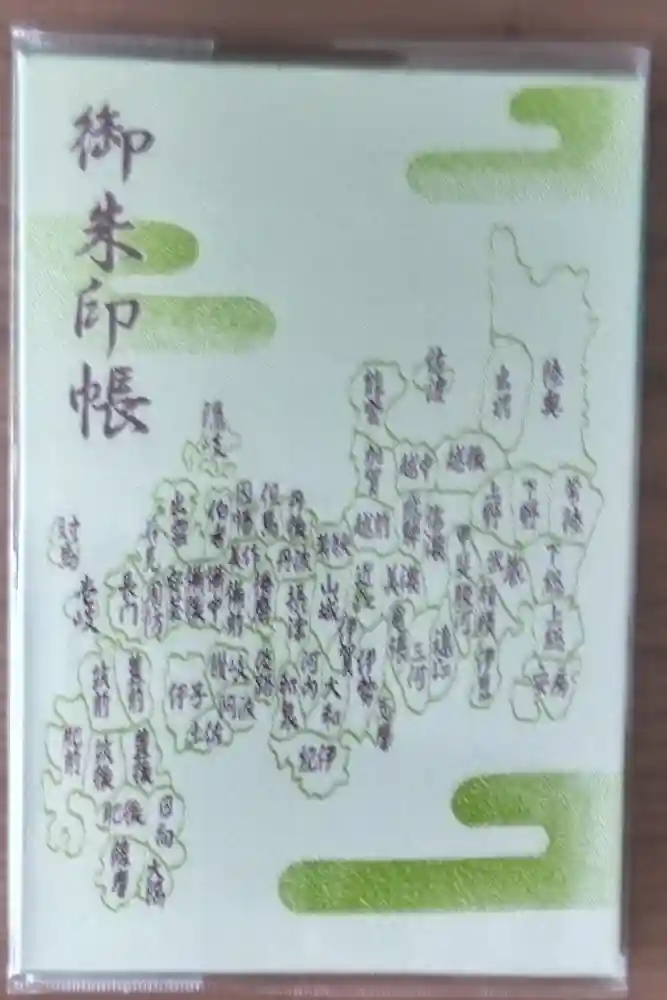 御朱印帳
佐渡
能登
出羽
陸奥
隠岐
加賀
越中
越後
上野
下野
常陸
出雲
伯耆
因幡
但馬
丹後
若狭
越前
飛騨
信濃
対馬
石見
美作
丹波
近江
美濃
甲斐
武蔵
下総
壱岐
長門
周防
安芸
備後
備中
備前
播磨
摂津
山城
伊賀
尾張
三河
遠江
駿河
相模
伊豆
上総
安房
筑前
豊前
伊予
讃岐
阿波
土佐
淡路
和泉
河内
大和
伊勢
志摩
紀伊
肥前
筑後
豊後
肥後
日向
薩摩
大隅